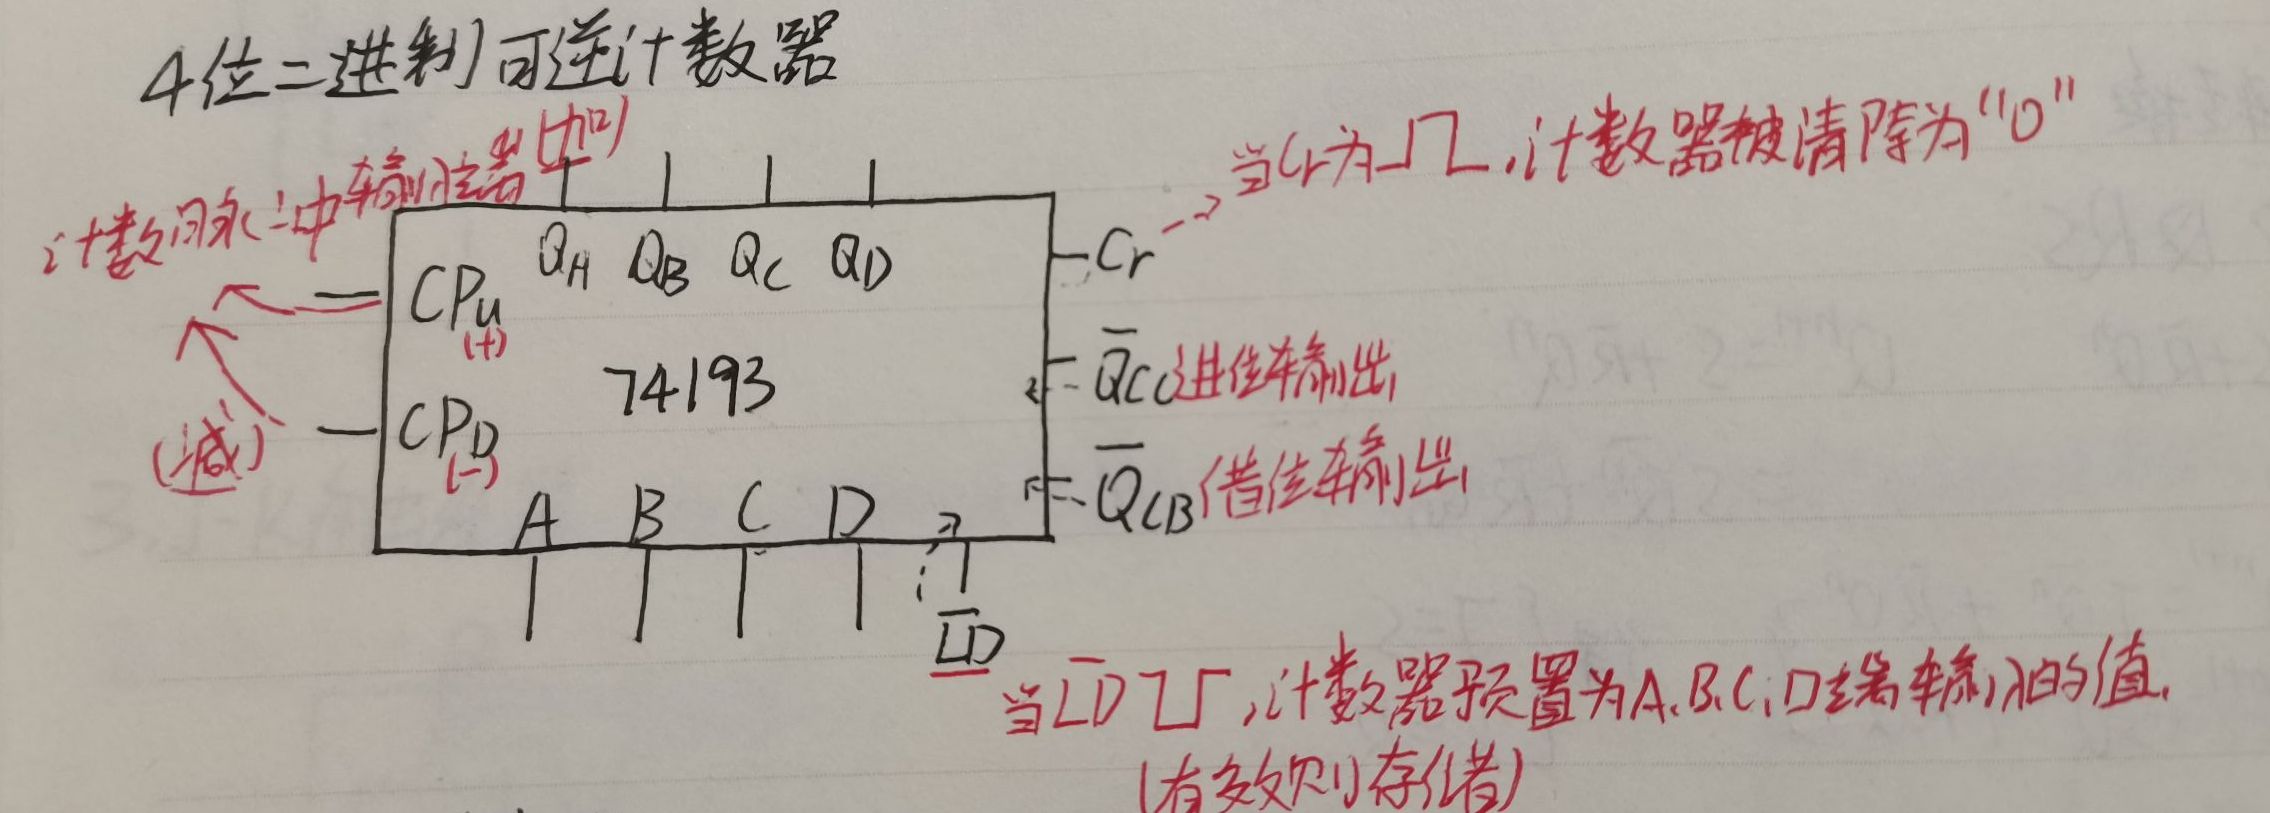 4位二进制可逆计数器
计数脉冲输入端(加)
当Cr为⎍,计数器被清除为“0”
QA QB QC QD
Cr
CPU
(+)
Q̅CC进位输出
74193
CPD
(-)
(减)
Q̅CB借位输出
A B C D
L̅D̅
当L̅D̅,计数器预置为A.B.C.D端输入的值.
(有效则存储)